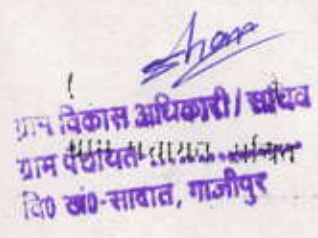 ग्राम विकास अधिकारी / सचिव
ग्राम पंचायत
वि0 खं0-सादात, गाजीपुर